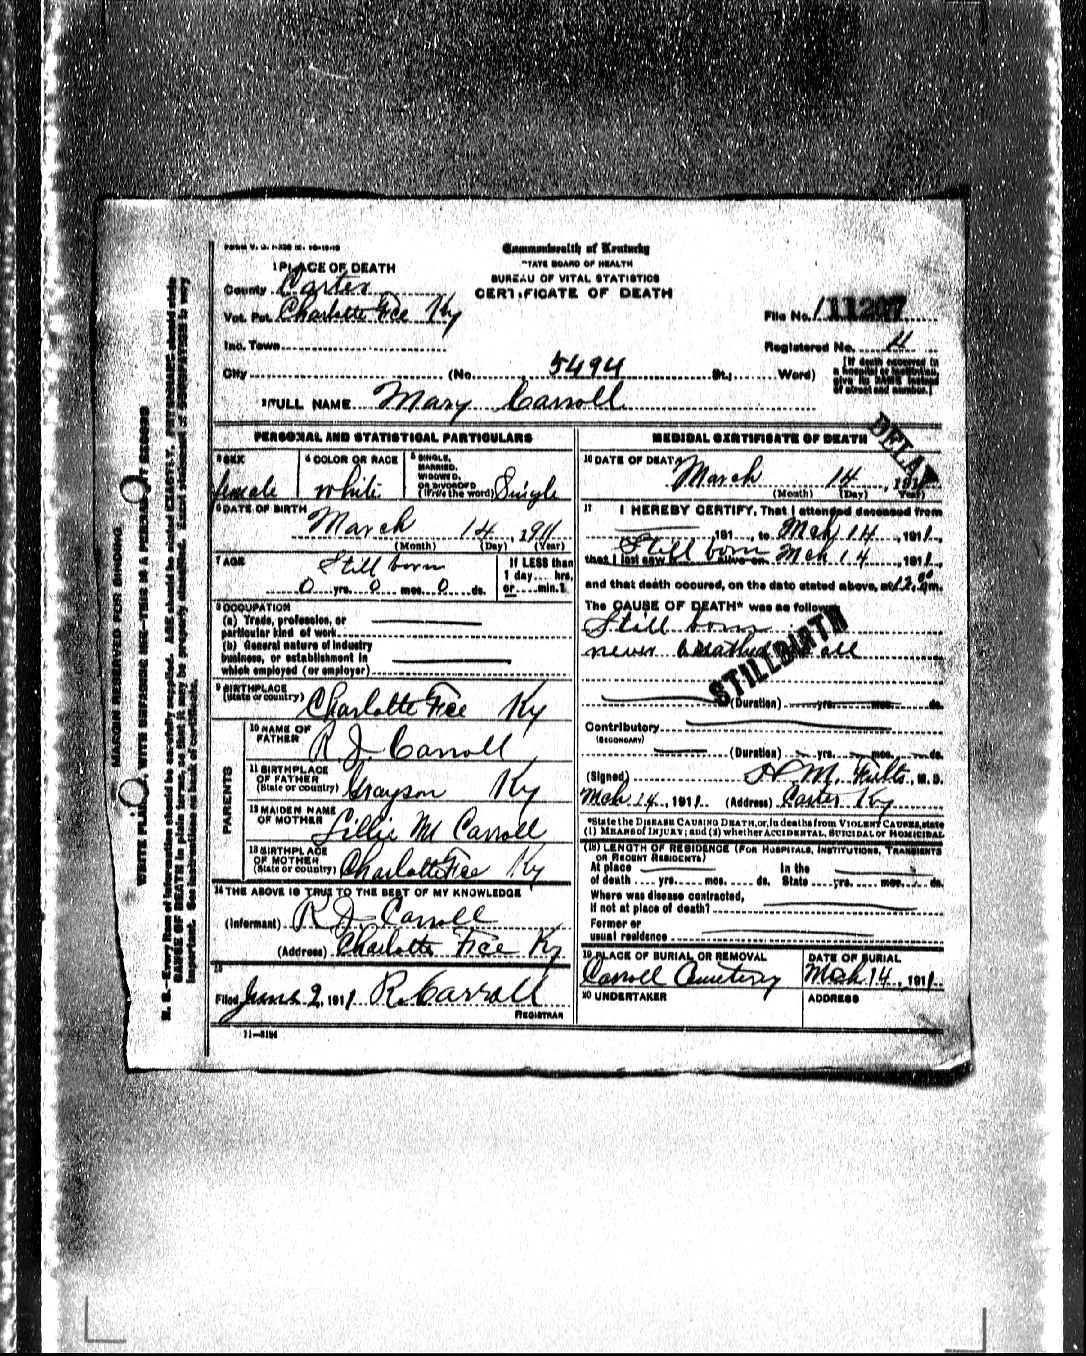 Commonwealth of Kentucky
STATE BOARD OF HEALTH
BUREAU OF VITAL STATISTICS
CERTIFICATE OF DEATH
1 PLACE OF DEATH
County Carter
Vot. Pct. Charlotte Fce Ky
Inc. Town
City (No. 5494 St.; Ward)
File No. 11207
Registered No. 4
[If death occurred in
a hospital or institution,
give its NAME instead
of street and number.]
2 FULL NAME Mary Carroll
DELAY
PERSONAL AND STATISTICAL PARTICULARS
3 SEX
female
4 COLOR OR RACE
white
5 SINGLE,
MARRIED,
WIDOWED,
OR DIVORCED
(Write the word) Single
6 DATE OF BIRTH
March 14, 1911
(Month) (Day) (Year)
7 AGE
Still born
0 yrs. 0 mos. 0 ds.
If LESS than
1 day.... hrs.
or.....min.?
8 OCCUPATION
(a) Trade, profession, or
particular kind of work
(b) General nature of industry
business, or establishment in
which employed (or employer)
9 BIRTHPLACE
(State or country) Charlotte Fce Ky
PARENTS
10 NAME OF
FATHER R J Carroll
11 BIRTHPLACE
OF FATHER
(State or country) Grayson Ky
12 MAIDEN NAME
OF MOTHER Lillie M Carroll
13 BIRTHPLACE
OF MOTHER
(State or country) Charlotte Fce Ky
14 THE ABOVE IS TRUE TO THE BEST OF MY KNOWLEDGE
(Informant) R J Carroll
(Address) Charlotte Fce Ky
15
Filed June 2, 1911 R. Carroll
REGISTRAR
11-3194
MEDICAL CERTIFICATE OF DEATH
16 DATE OF DEATH
March 14, 191
(Month) (Day) Year)
17 I HEREBY CERTIFY, That I attended deceased from
, 191 , to Mch 14, 1911,
that I last saw h Still born alive on Mch 14, 1911,
and that death occured, on the date stated above, at 12.00 m.
The CAUSE OF DEATH* was as follows
Still born
never breathed all
STILLBIRTH
(Duration) yrs. mos. ds.
Contributory
(SECONDARY)
(Duration) yrs. mos. ds.
(Signed) M. Fults, M. D.
Mch 14, 1911. (Address) Carter Ky
*State the DISEASE CAUSING DEATH, or, in deaths from VIOLENT CAUSES, state
(1) MEANS of INJURY; and (2) whether ACCIDENTAL, SUICIDAL or HOMICIDAL
(18) LENGTH OF RESIDENCE (FOR HOSPITALS, INSTITUTIONS, TRANSIENTS
OR RECENT RESIDENTS)
At place
of death yrs. mos. ds.
In the
State yrs. mos. ds.
Where was disease contracted,
if not at place of death?
Former or
usual residence
19 PLACE OF BURIAL OR REMOVAL
Carroll Cemetery
DATE OF BURIAL
Mch 14, 1911.
20 UNDERTAKER
ADDRESS
MARGIN RESERVED FOR BINDING
WRITE PLAINLY, WITH UNFADING INK—THIS IS A PERMANENT RECORD
N. B.—Every item of information should be carefully supplied. AGE should be stated EXACTLY. PHYSICIANS should state
CAUSE OF DEATH in plain terms, so that it may be properly classified. Exact statement of OCCUPATION is very
important. See instructions on back of certificate.